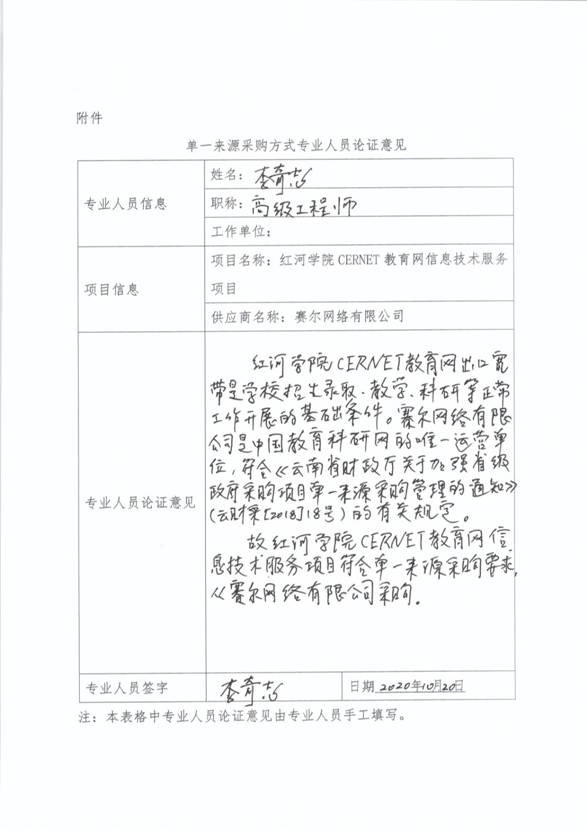 附件
单一来源采购方式专业人员论证意见
专业人员信息
姓名：李奇志
职称：高级工程师
工作单位：
项目信息
项目名称：红河学院 CERNET 教育网信息技术服务
项目
供应商名称：赛尔网络有限公司
专业人员论证意见
红河学院CERNET教育网出口宽
带是学校招生录取、教学、科研等正常
工作开展的基础条件。赛尔网络有限
公司是中国教育科研网的唯一运营单
位，符合《云南省财政厅关于加强省级
政府采购项目单一来源采购管理的通知》
（云财采[2018]18号）的有关规定。
故红河学院CERNET教育网信
息技术服务项目符合单一来源采购要求，
从赛尔网络有限公司采购。
专业人员签字
李奇志
日期 2020年10月20日
注：本表格中专业人员论证意见由专业人员手工填写。